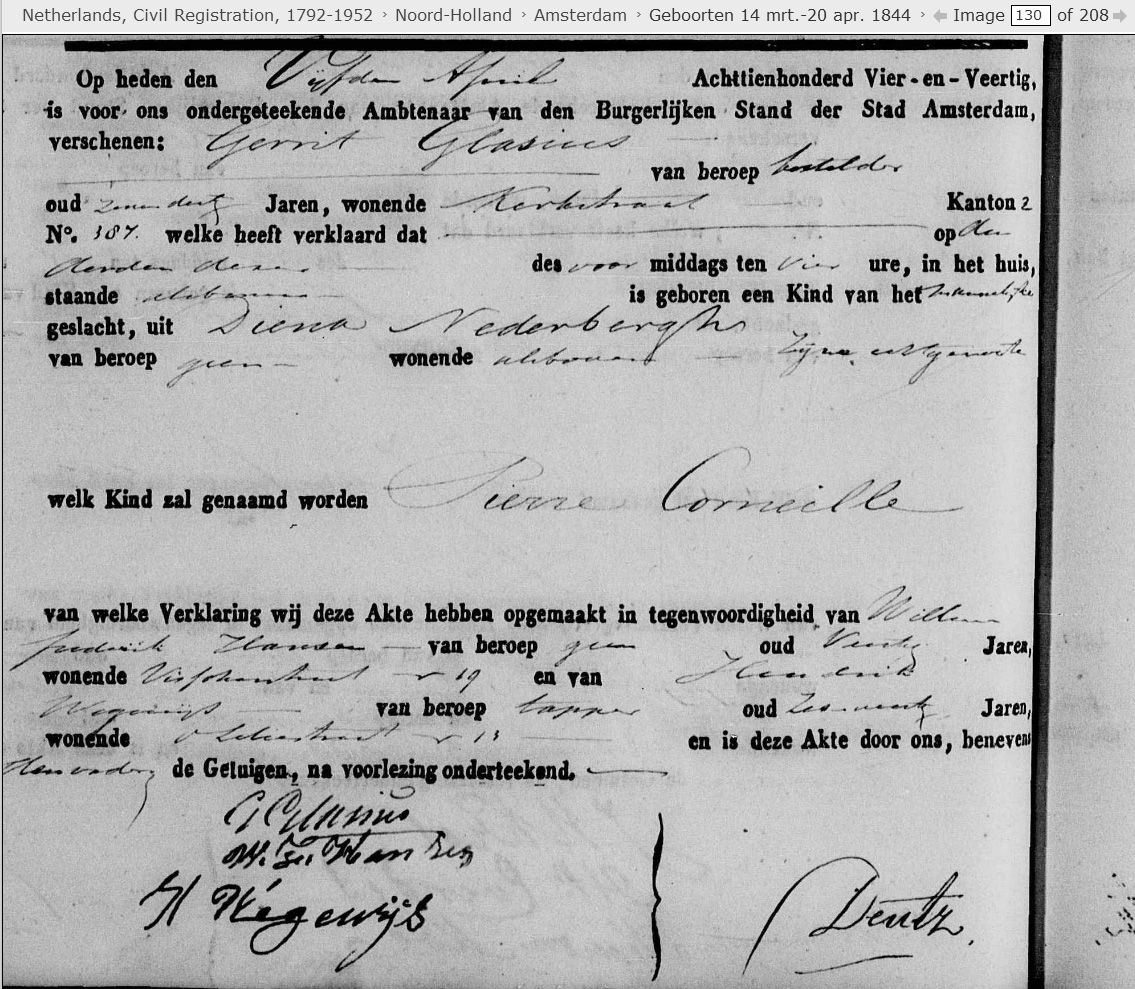 Netherlands, Civil Registration, 1792-1952 › Noord-Holland › Amsterdam › Geboorten 14 mrt.-20 apr. 1844 › Image 130 of 208
Op heden den Vijfden April Achttienhonderd Vier-en-Veertig,
is voor ons ondergeteekende Ambtenaar van den Burgerlijken Stand der Stad Amsterdam,
verschenen: Gerrit Glasius
van beroep besteller
oud zevendertig Jaren, wonende Kerkstraat Kanton 2
No. 387. welke heeft verklaard dat op den
derden dezer des voor middags ten vier ure, in het huis,
staande alsboven is geboren een Kind van het mannelijke
geslacht, uit Diena Nederbergh
van beroep geen wonende alsboven Zijne echtgenoote
welk Kind zal genaamd worden Pierre Corneille
van welke Verklaring wij deze Akte hebben opgemaakt in tegenwoordigheid van Willem
frederik Hansen van beroep geen oud Veertig Jaren,
wonende n 19 en van Hendrik
Wegewijs van beroep tapper oud Zes-veertig Jaren,
wonende n 13 en is deze Akte door ons, benevens
de Getuigen, na voorlezing onderteekend.
G Glasius
W. Fr Hansen
H Wegewijs
Dentz.